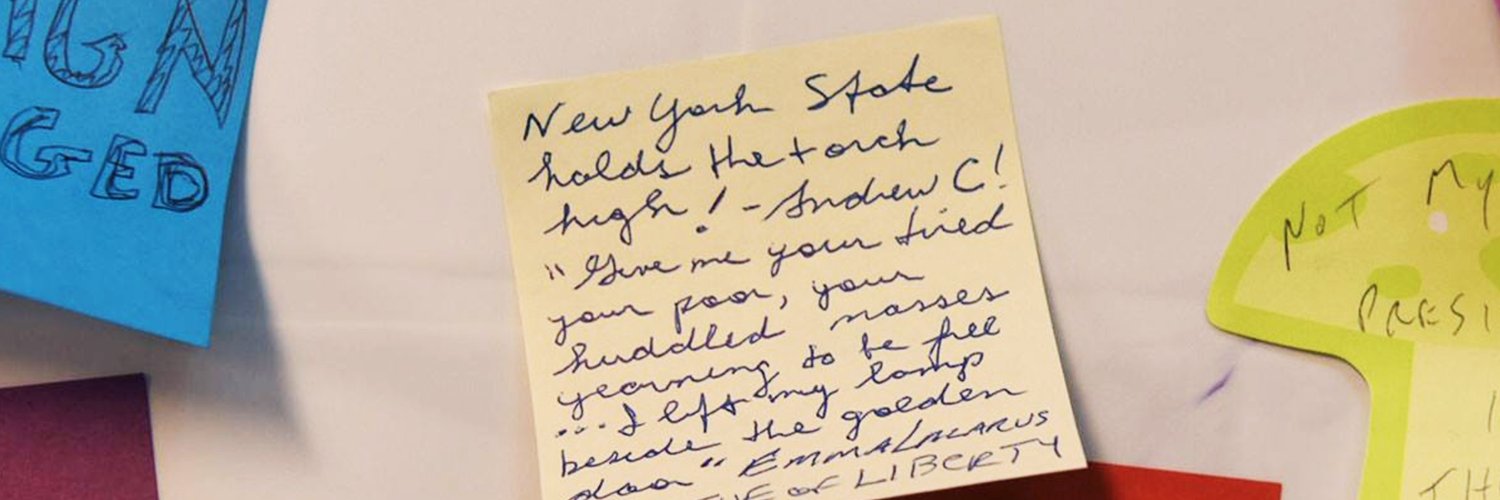 IGN
GED
New York State
holds the torch
high! - Andrew C!
"Give me your tired
your poor, your
huddled masses
yearning to be free
...I lift my lamp
beside the golden
door" EMMA LAZARUS
OF LIBERTY
NOT MY
PRESI